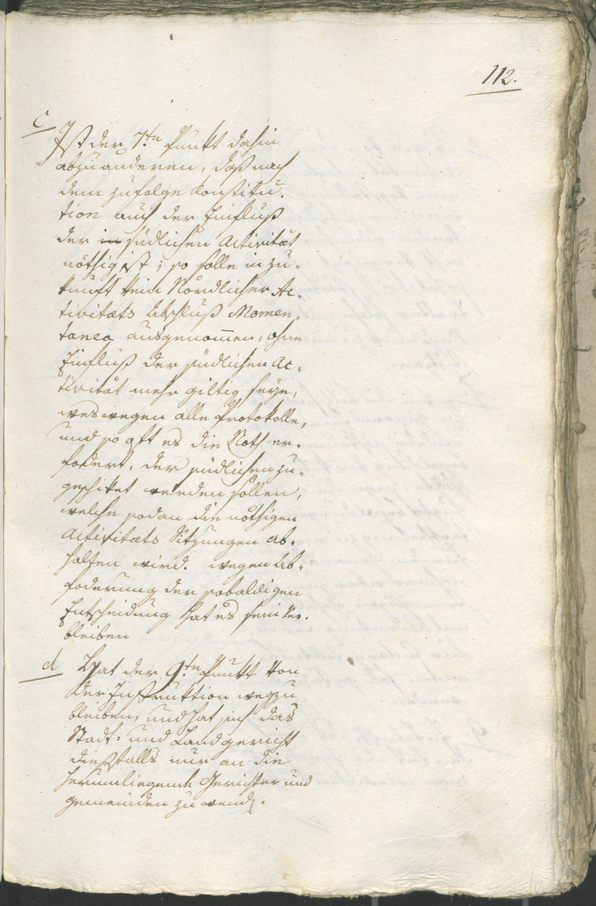 112.
c Ist der 7te Punkt dahin
abzuänderen, daß nach
dem zufolge Konstitu-
tion auch der Einfluß
der südlichen Activität
nöthig ist; so solle in zu-
kunft kein Nördlicher Ac-
tivitæts Abschluß Momen-
tanea ausgenommen, ohne
Einfluß der südlichen Ac-
tivität mehr giltig seyn,
weswegen alle Protokolle,
und so oft es die Noth er-
fodert, der südlichen zu-
geschiket werden sollen,
welche sodan die nöthigen
Activitæts Sitzungen ab-
halten wird. wegen Ab-
foderung der sobaldigen
Entscheidung hat es sein ver-
bleiben
d Hat der 9te Punkt von
der Instruktion wegzu
bleiben, und hat sich das
Stadt- und Landgericht
dießfalls nur an die
herumliegende Gerichter und
gemeinden zu wenden.